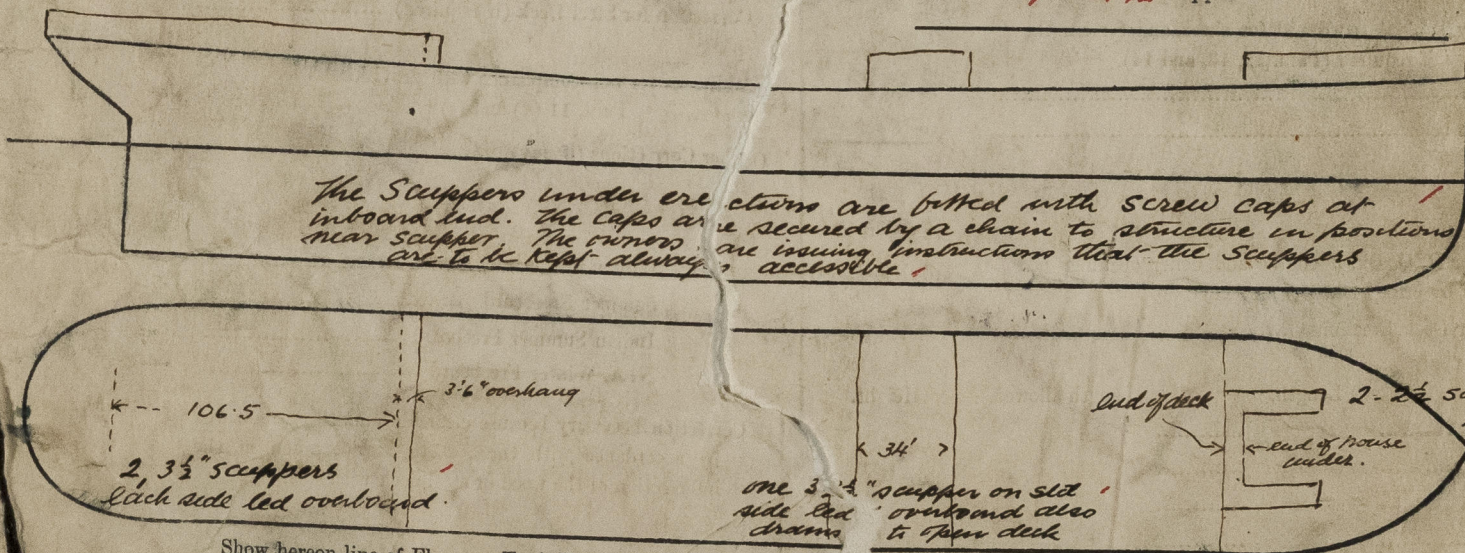 The Scuppers under erections are fitted with screw caps at
inboard end. The caps are secured by a chain to structure in positions
near scupper. The owners are issuing instructions that the Scuppers
are to be kept always accessible
3'-6" overhang
106.5
2, 3½" scuppers
each side led overboard.
34'
one 3½" scupper on stb
side led overboard also
drains to open deck
end of deck
2 - 2½
end of house
under.
Show hereon line of